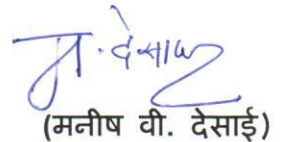 म. देसाई
(मनीष वी. देसाई)